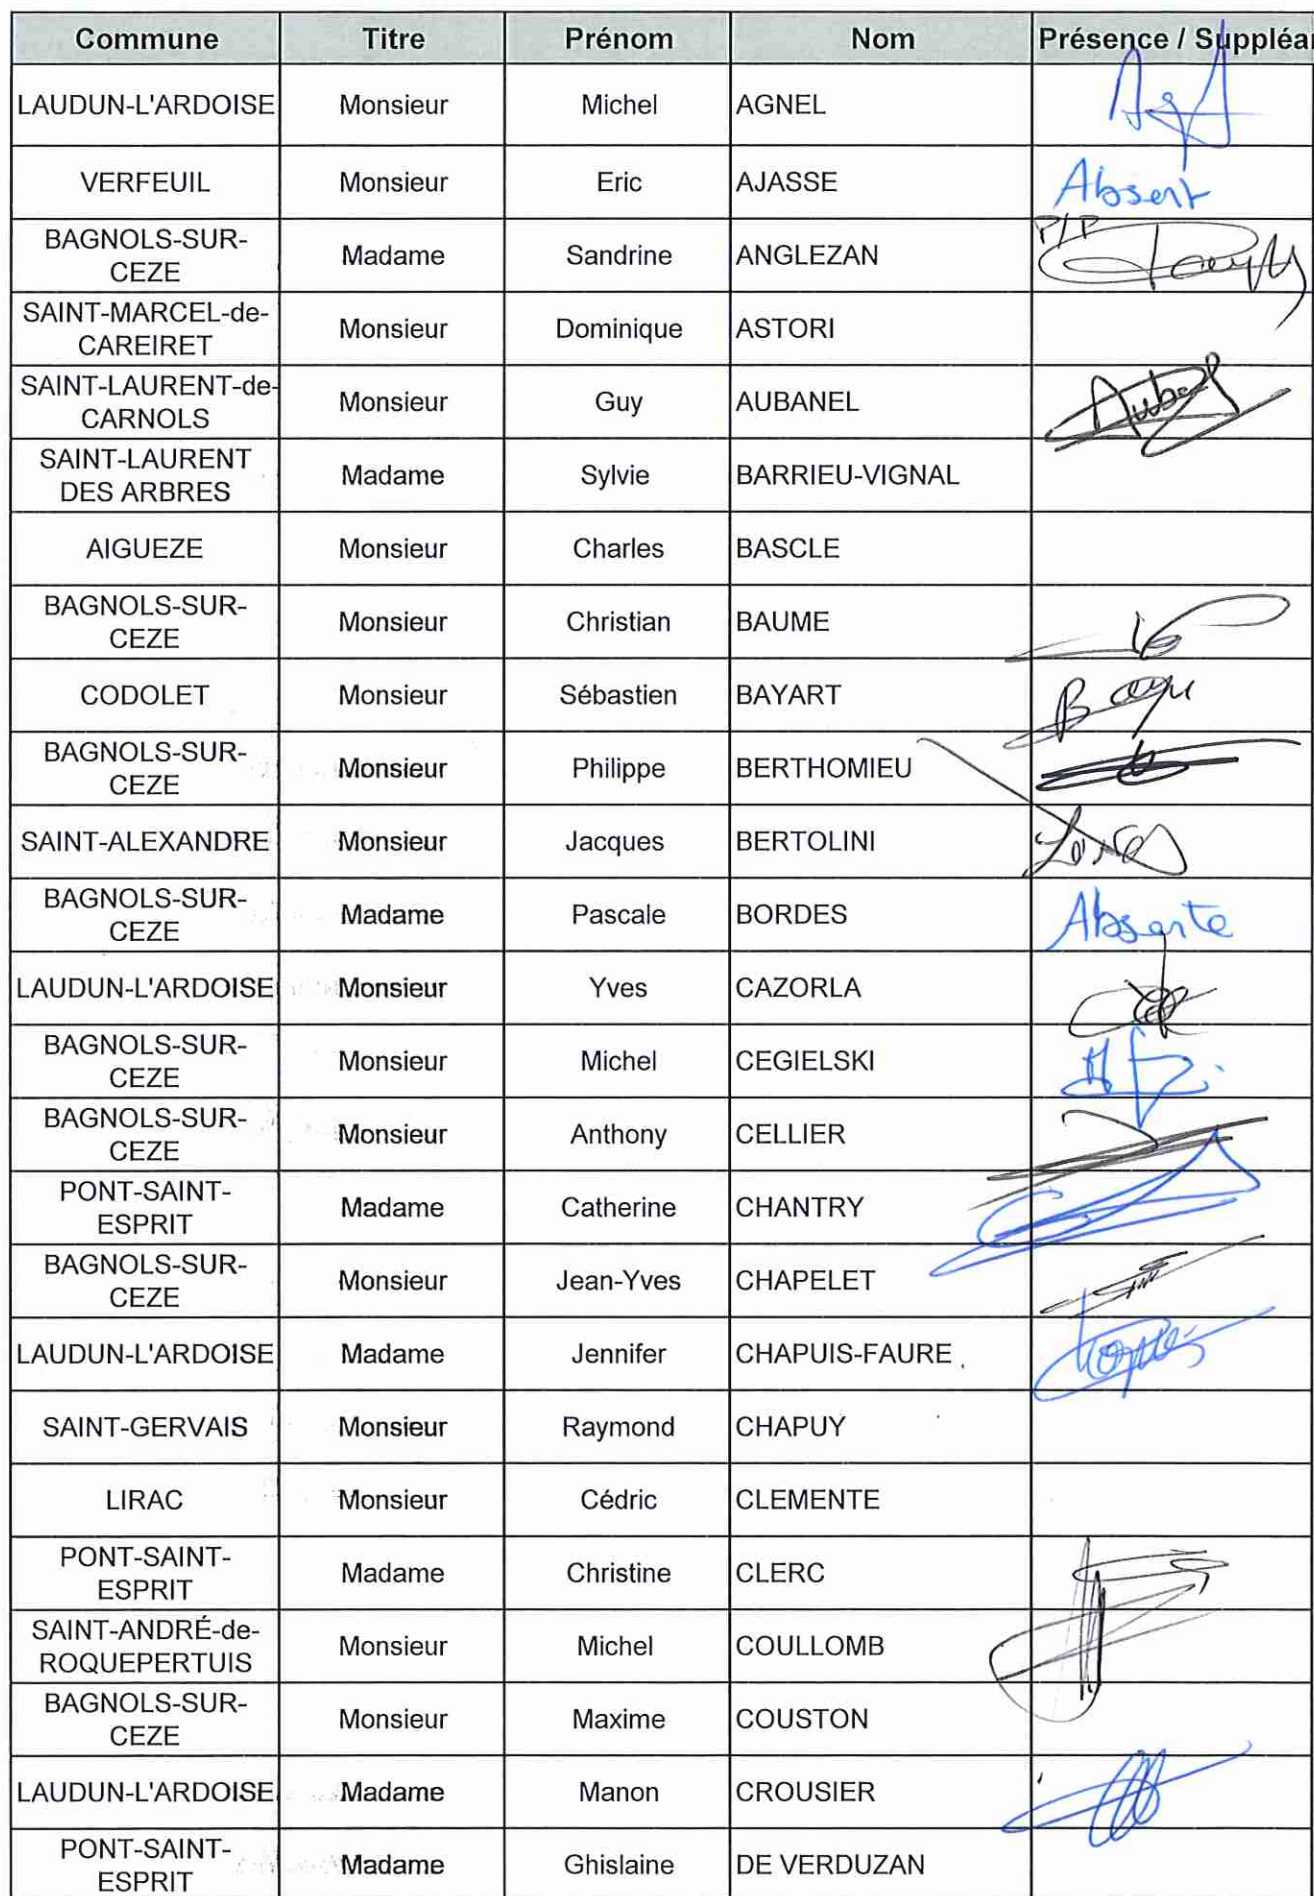 Commune Titre Prénom Nom Présence / Suppléa
LAUDUN-L'ARDOISE Monsieur Michel AGNEL
VERFEUIL Monsieur Eric AJASSE Absent
BAGNOLS-SUR-
CEZE Madame Sandrine ANGLEZAN P/P
SAINT-MARCEL-de-
CAREIRET Monsieur Dominique ASTORI
SAINT-LAURENT-de-
CARNOLS Monsieur Guy AUBANEL
SAINT-LAURENT
DES ARBRES Madame Sylvie BARRIEU-VIGNAL
AIGUEZE Monsieur Charles BASCLE
BAGNOLS-SUR-
CEZE Monsieur Christian BAUME
CODOLET Monsieur Sébastien BAYART
BAGNOLS-SUR-
CEZE Monsieur Philippe BERTHOMIEU
SAINT-ALEXANDRE Monsieur Jacques BERTOLINI
BAGNOLS-SUR-
CEZE Madame Pascale BORDES Absente
LAUDUN-L'ARDOISE Monsieur Yves CAZORLA
BAGNOLS-SUR-
CEZE Monsieur Michel CEGIELSKI
BAGNOLS-SUR-
CEZE Monsieur Anthony CELLIER
PONT-SAINT-
ESPRIT Madame Catherine CHANTRY
BAGNOLS-SUR-
CEZE Monsieur Jean-Yves CHAPELET
LAUDUN-L'ARDOISE Madame Jennifer CHAPUIS-FAURE
SAINT-GERVAIS Monsieur Raymond CHAPUY
LIRAC Monsieur Cédric CLEMENTE
PONT-SAINT-
ESPRIT Madame Christine CLERC
SAINT-ANDRÉ-de-
ROQUEPERTUIS Monsieur Michel COULLOMB
BAGNOLS-SUR-
CEZE Monsieur Maxime COUSTON
LAUDUN-L'ARDOISE Madame Manon CROUSIER
PONT-SAINT-
ESPRIT Madame Ghislaine DE VERDUZAN